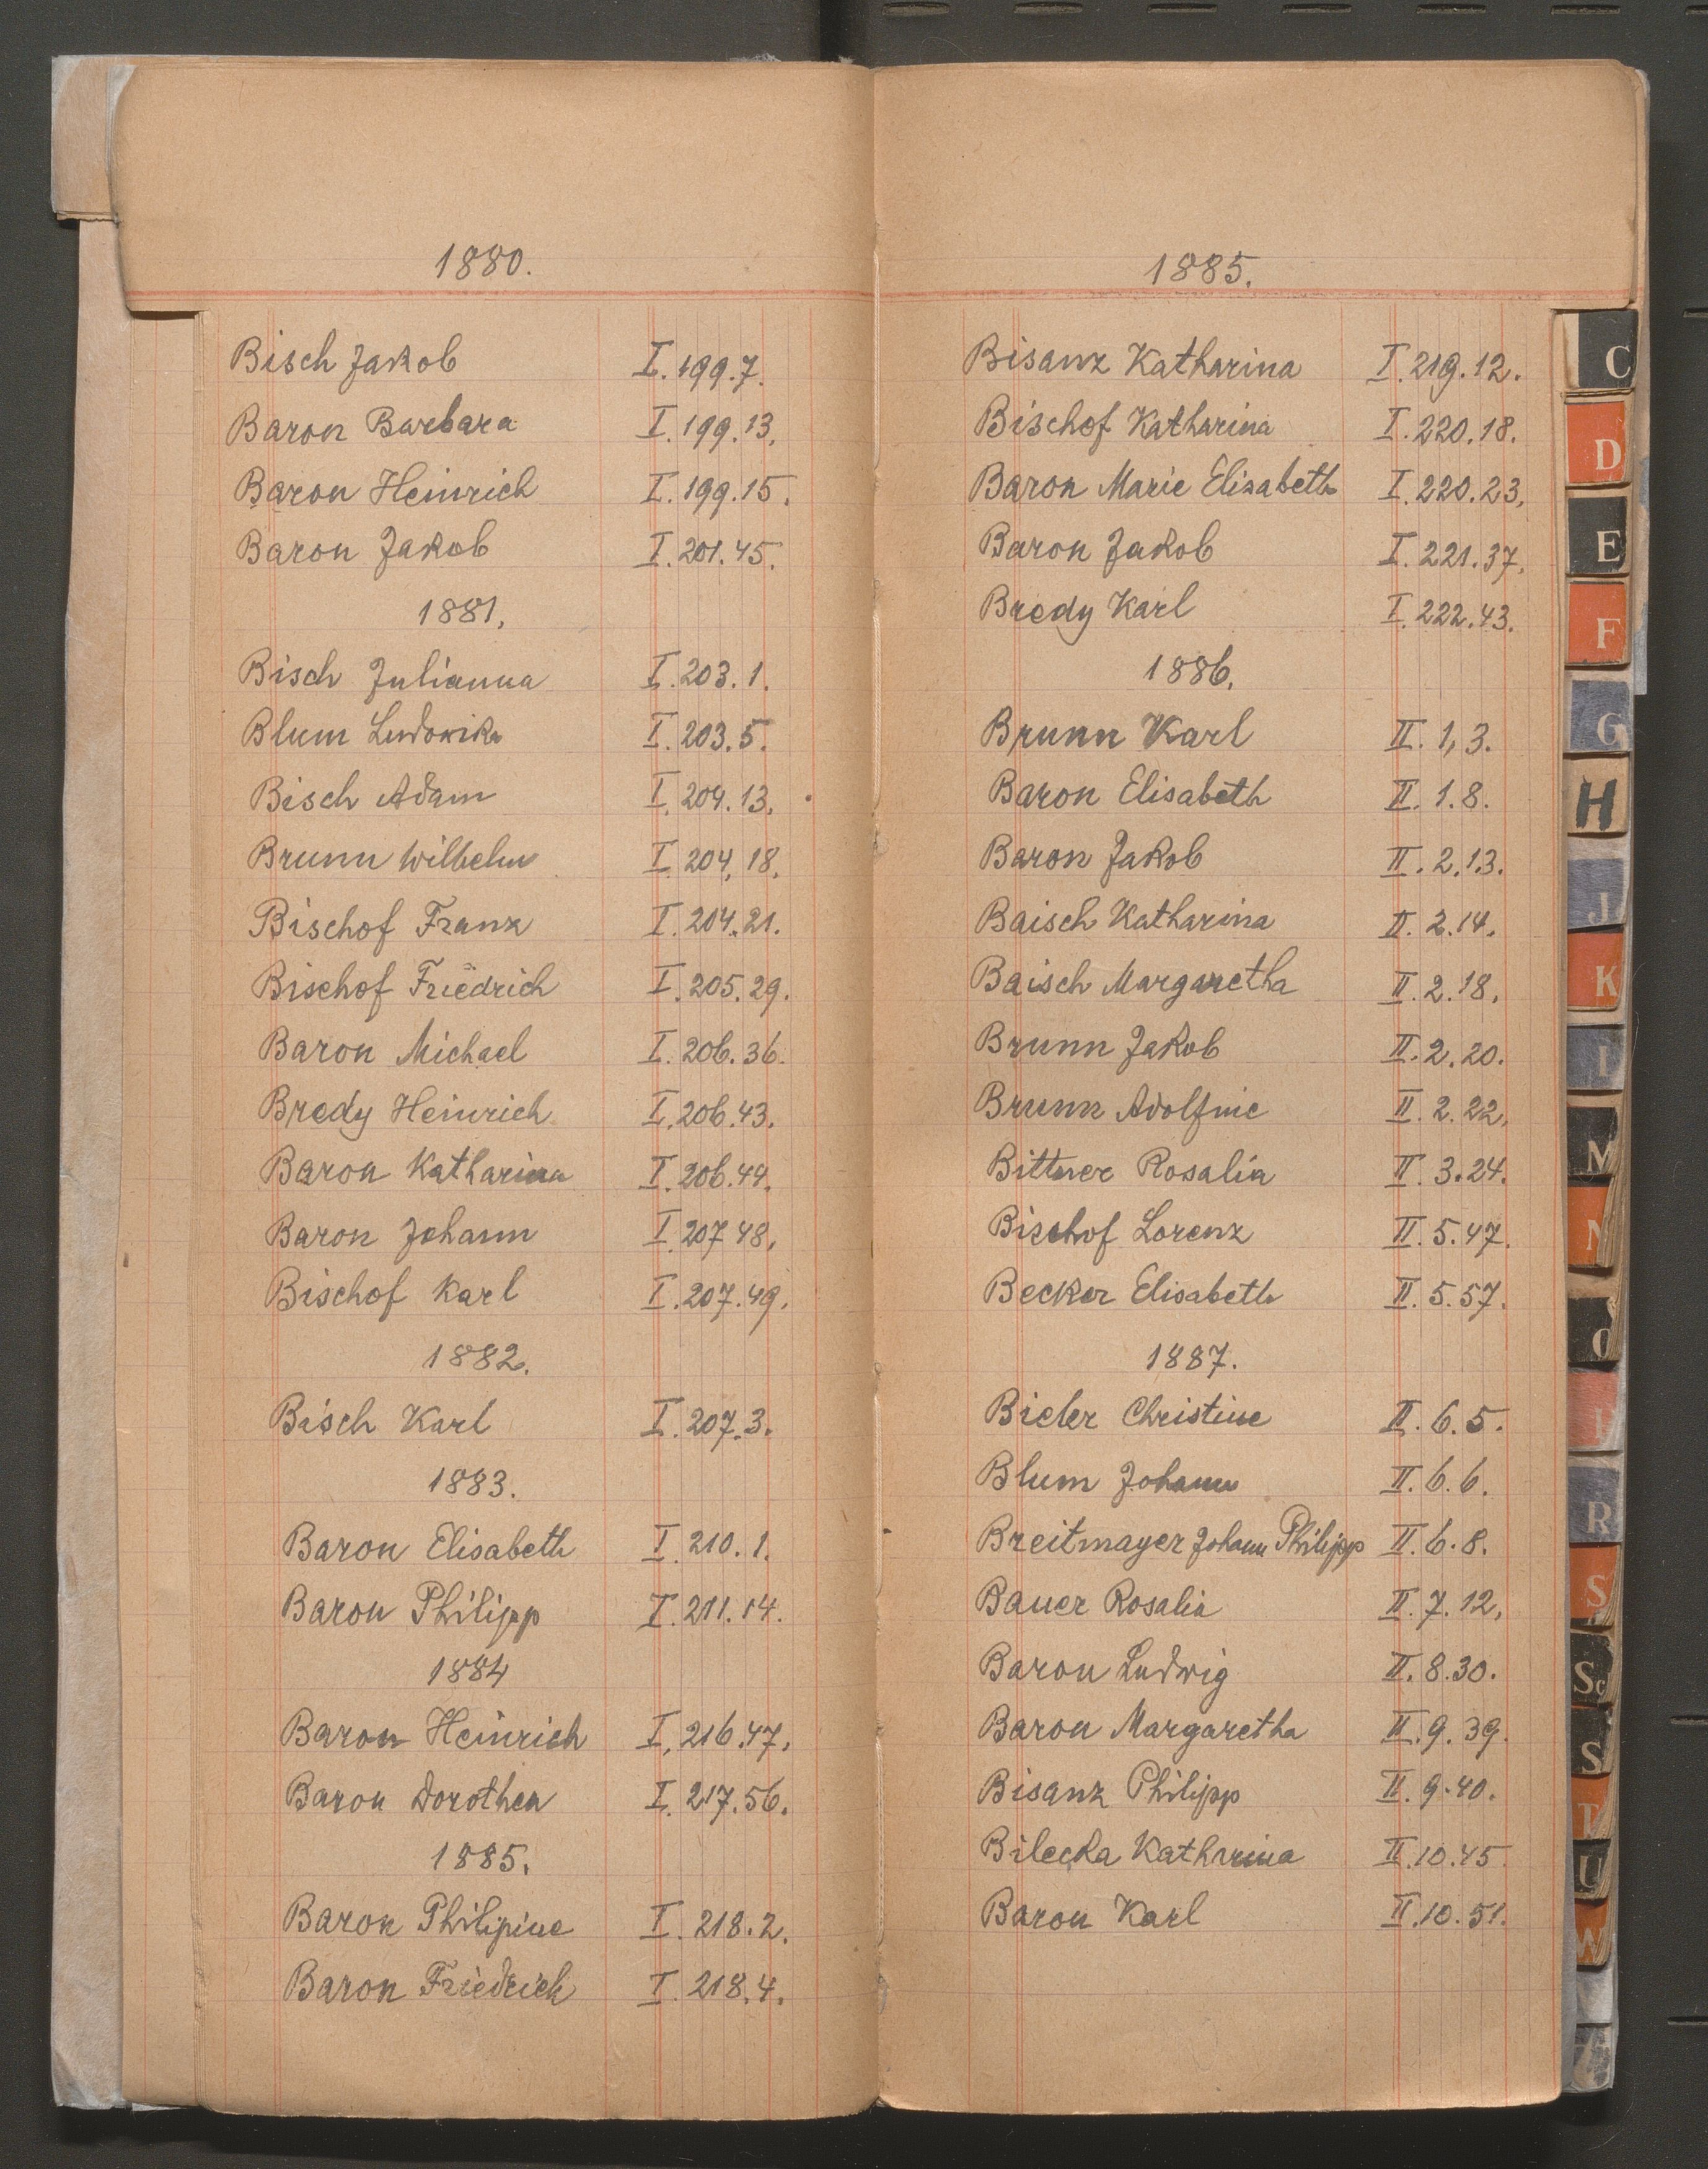 1880.
Bisch Jakob I.199.7.
Baron Barbara I.199.13.
Baron Heinrich I.199.15.
Baron Jakob I.201.45.
1881.
Bisch Julianna I.203.1.
Blum Ludowika I.203.5.
Bisch Adam I.204.13.
Brunn Wilhelm I.204.18.
Bischof Franz I.204.21.
Bischof Friedrich I.205.29.
Baron Michael I.206.36.
Bredy Heinrich I.206.43.
Baron Katharina I.206.44.
Baron Johann I.207 48.
Bischof Karl I.207.49.
1882.
Bisch Karl I.207.3.
1883.
Baron Elisabeth I.210.1.
Baron Philipp I.211.14.
1884
Baron Heinrich I.216.47.
Baron Dorothea I.217.56.
1885.
Baron Philipine I.218.2.
Baron Friedrich I.218.4.
1885.
Bisanz Katharina I.219.12.
Bischof Katharina I.220.18.
Baron Marie Elisabeth I.220.23.
Baron Jakob I.221.37.
Bredy Karl I.222.43.
1886.
Brunn Karl II.1,3.
Baron Elisabeth II.1.8.
Baron Jakob II.2.13.
Baisch Katharina II.2.14.
Baisch Margaretha II.2.18.
Brunn Jakob II.2.20.
Brunn Adolfine II.2.22.
Bittner Rosalia II.3.24.
Bischof Lorenz II.5.47.
Becker Elisabeth II.5.57.
1887.
Bieler Christine II.6.5.
Blum Johann II.6.6.
Breitmayer Johann Philipp II.6.8.
Bauer Rosalia II.7.12.
Baron Ludwig II.8.30.
Baron Margaretha II.9.39.
Bisanz Philipp II.9.40.
Bilecka Katharina II.10.45.
Baron Karl II.10.51.
C
D
E
F
G
H
J
K
M
N
O
R
S
Sc
S
T
U
W